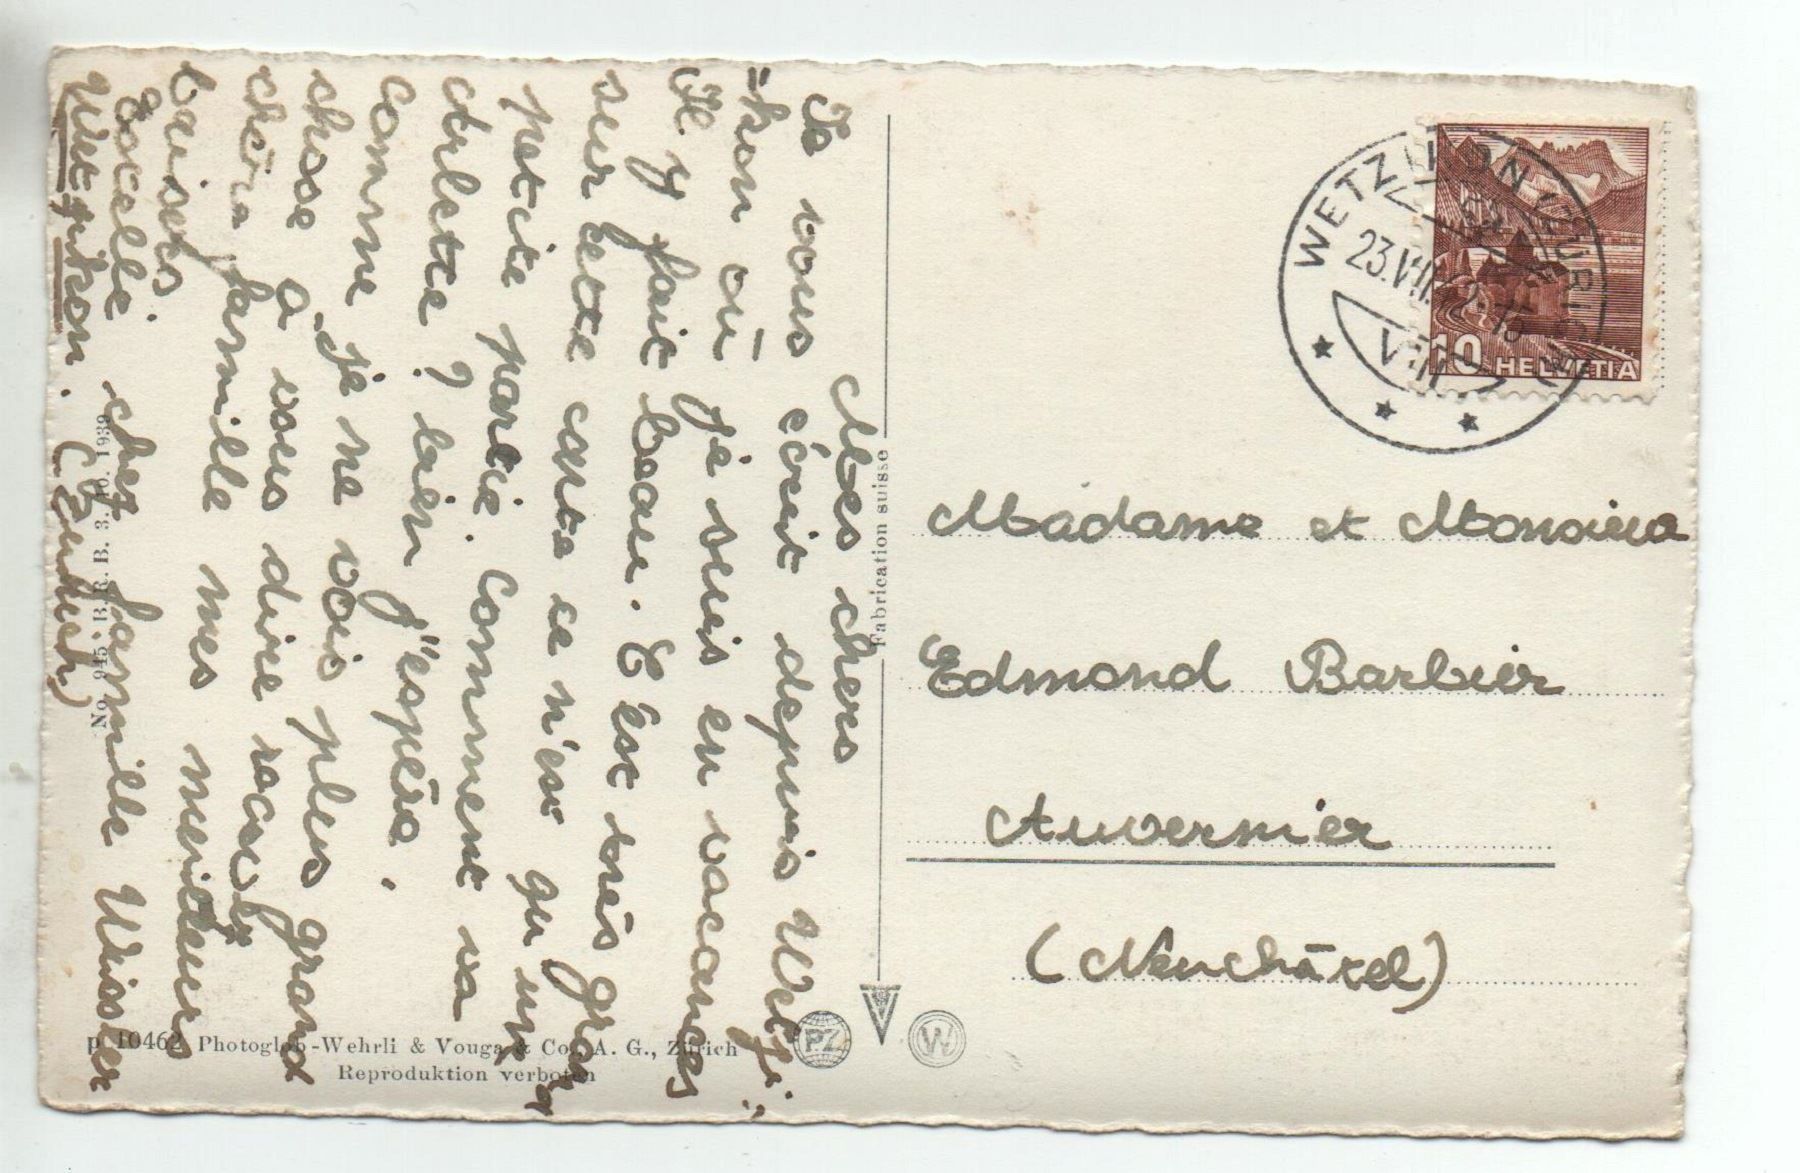 Mes chers
Je vous écrit depuis Wetzi=
=kon où je suis en vacances
Il y fait beau. C'est très gra
sur cette carte ce n'est qu'une
petite partie. Comment va
Arlette? bien j'espère.
Comme je ne vois plus grand
chose a vous dire recevez
chère famille mes meilleurs
baisers.
chez famille Wissler
Wetzikon. (Zürich)
Madame et Monsieur
Edmond Barbier
Auvernier
(Neuchâtel)
WETZIKON (ZÜRICH)
23.VIII.
10 HELVETIA
Fabrication suisse
No. 945. B.R.B. 3. 10. 1939
p 10462 Photoglob-Wehrli & Vouga & Co., A. G., Zürich
Reproduktion verboten
PZ
W